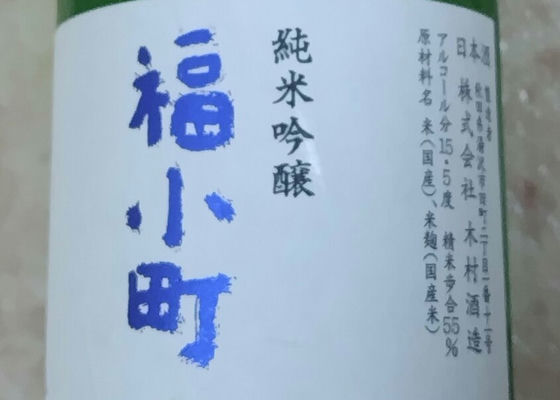 日本酒
製造者
秋田県湯沢市田町二丁目一番十一号
株式会社 木村酒造
アルコール分15.5度 精米歩合55%
原材料名 米(国産)、米麹(国産米)
純米吟醸
福小町